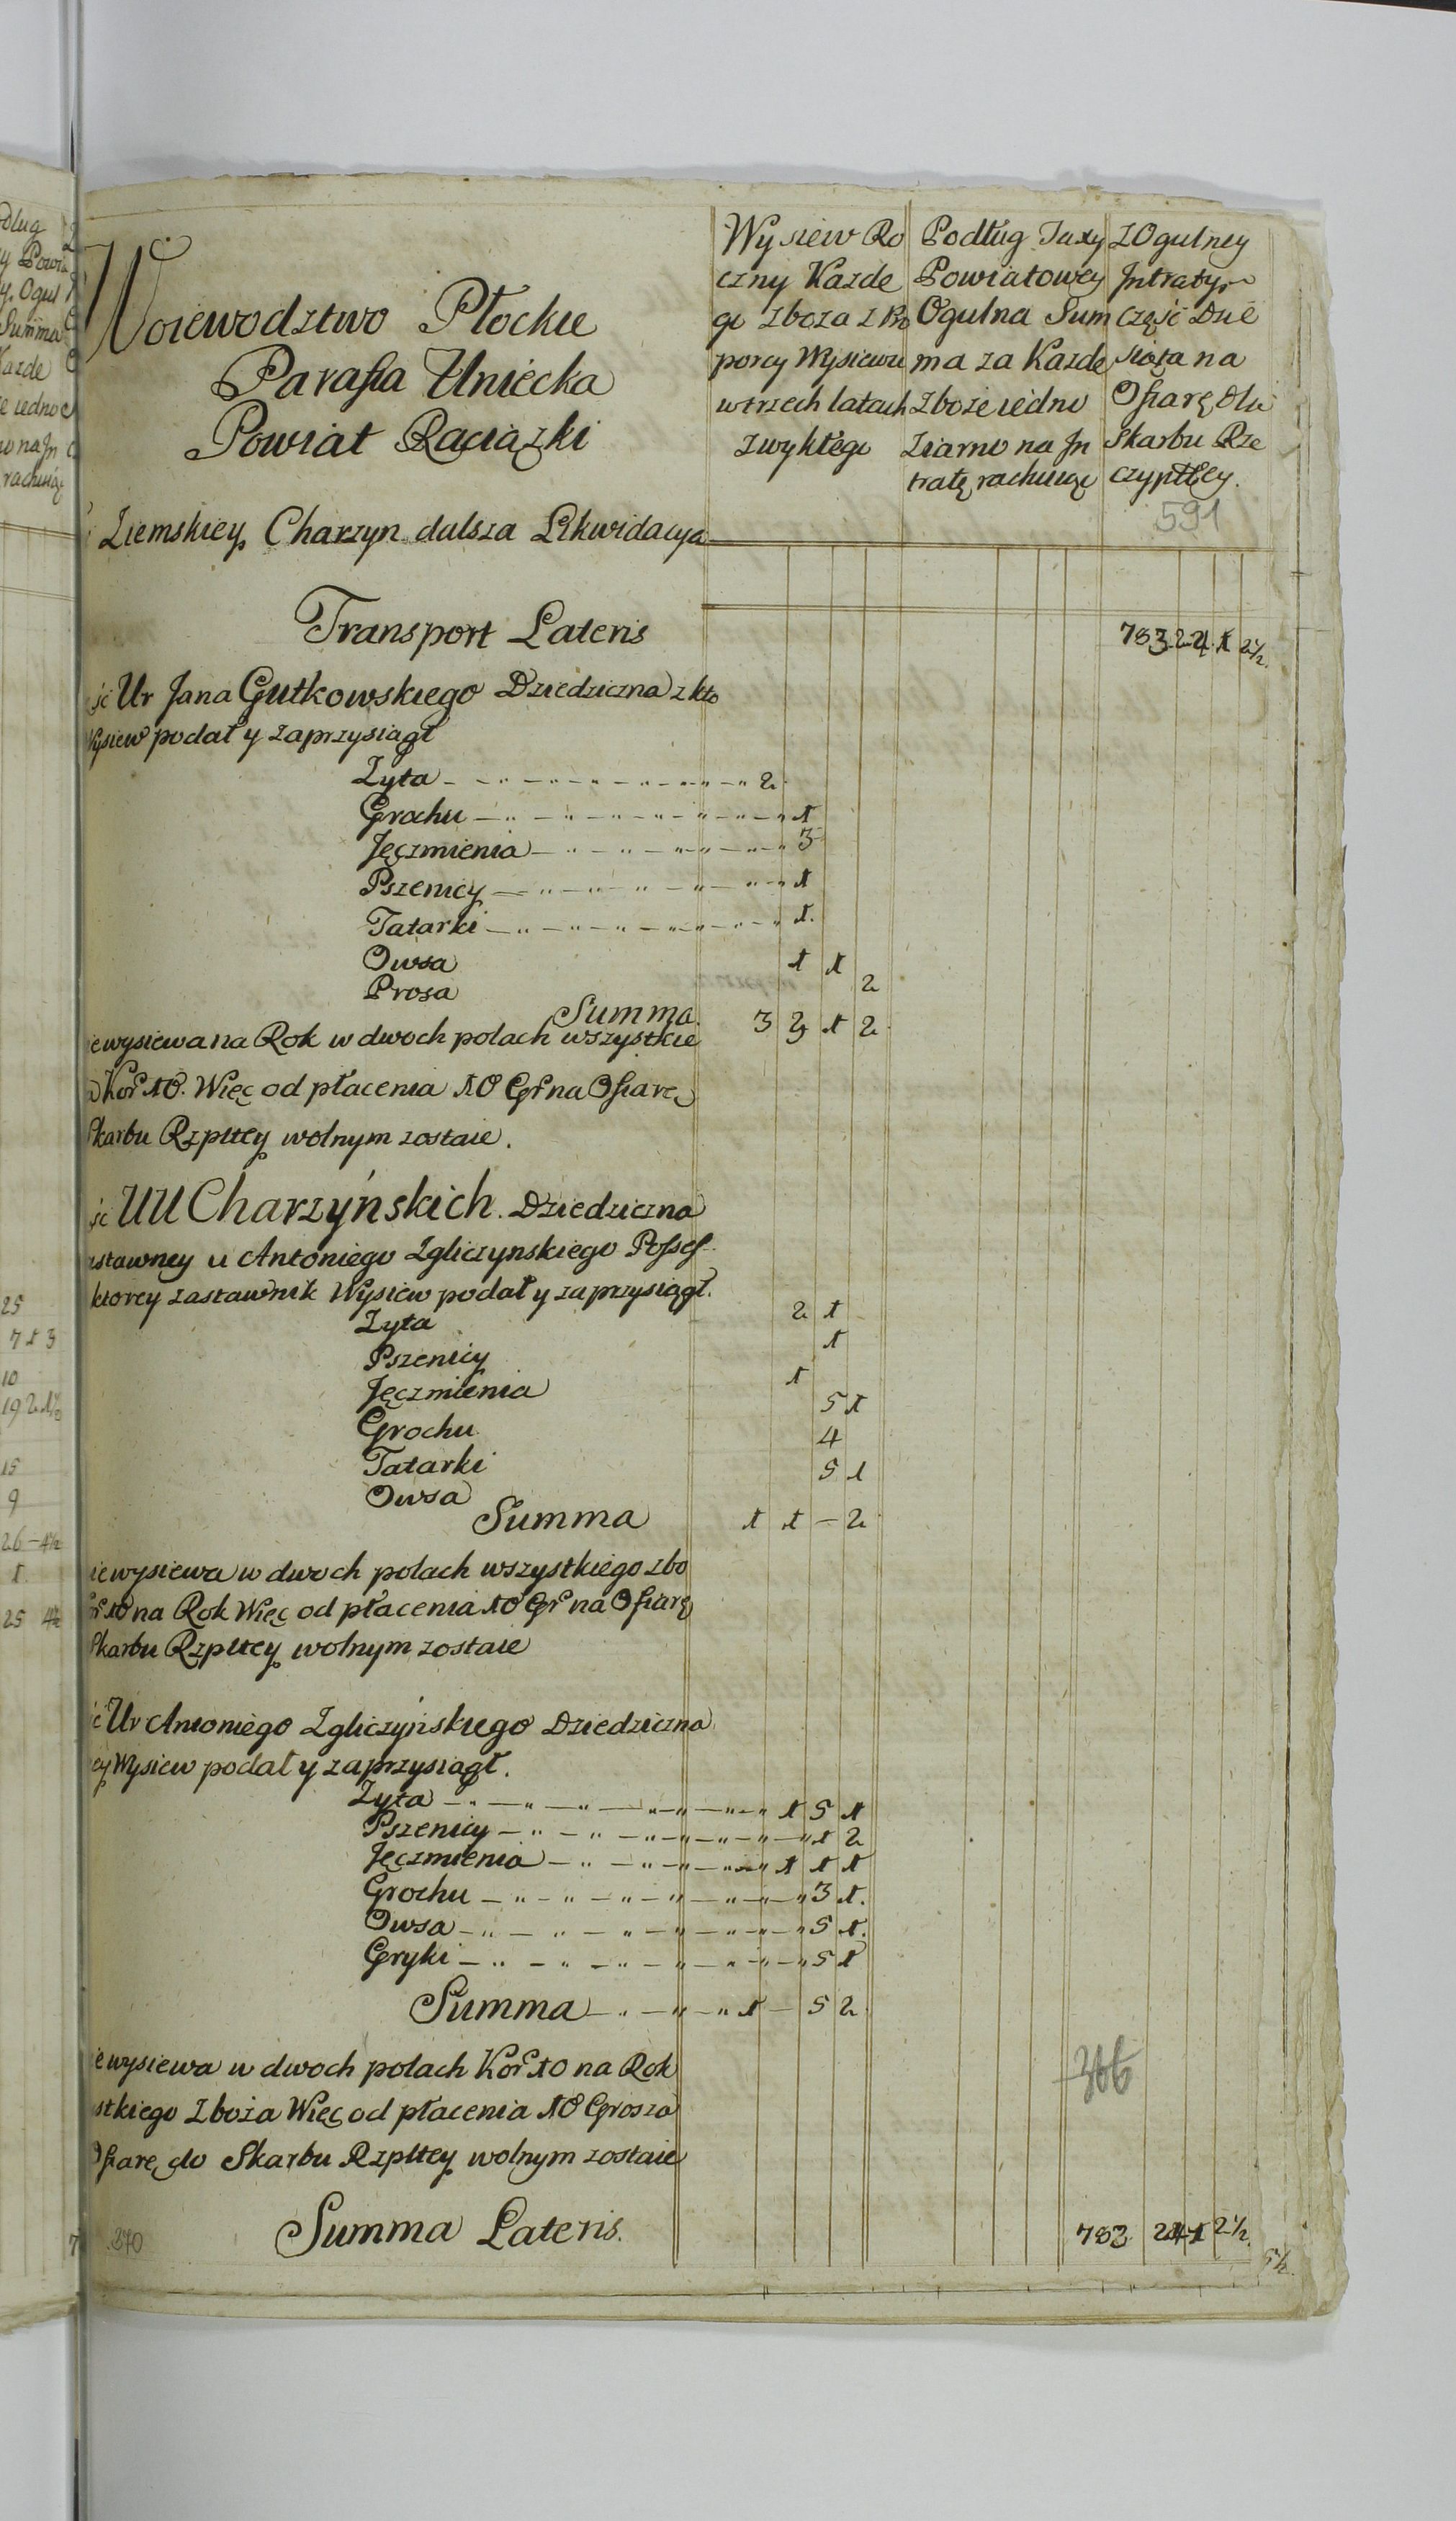 Woiewodztwo Płockie
Parafia Uniecka
Powiat Raciąski
Wysiew Ro
czny Kazde
go zboza z Pro
porcy Wysiewu
w trzech latach
zwykłego
Podług Taxy
Powiatowey
Ogulna Sum
ma za Kazde
zboże iedno
Ziarno na In
tratę rachuiąc
Z Ogulney
Intraty
część Dzie
siąta na
Ofiarę do
Skarbu Rze
czypttey.
591
Ziemskiey Charzyn dalsza Likwidacya
Transport Lateris 783 24 1 2½
ść Ur Jana Gutkowskiego Dziedziczna z kto
Wysiew podał y zaprzysiągł
Zyta 2
Grochu 1
Jęczmienia 3
Pszenicy 1
Tatarki 1.
Owsa 1 1
Prosa 2
Summa 3 3 1 2
ie wysiewa na Rok w dwoch polach wszystkie
Kor 10. Więc od płacenia 10 Gr na Ofiarę
Skarbu Rzpltey wolnym zostaie.
ść UU Charzyńskich. Dziedziczna
astawney u Antoniego Zgliczynskiego Possess
ktorey zastawnik Wysiew podał y zaprzysiągł.
Zyta 2 1
Pszenicy 1
Jęczmienia 1
Grochu 5 1
Tatarki 4
Owsa 5 1
Summa 1 1 - 2
ie wysiewa w dwoch polach wszystkiego zbo
10 na Rok Więc od płacenia 10 Gr na Ofiarę
Skarbu Rzpltey wolnym zostaie
ść Ur Antoniego Zgliczyńskiego Dziedziczna
ey Wysiew podał y zaprzysiągł.
Zyta 1 5 1
Pszenicy 1 2
Jęczmienia 1 1 1
Grochu 3 1.
Owsa 5 1.
Gryki 5 1
Summa 1 - 5 2
ie wysiewa w dwoch polach Kor 10 na Rok
stkiego Zboża Więc od płacenia 10 Grosza
Ofiarę do Skarbu Rzpltey wolnym zostaie
Summa Lateris. 783 24 1 2½